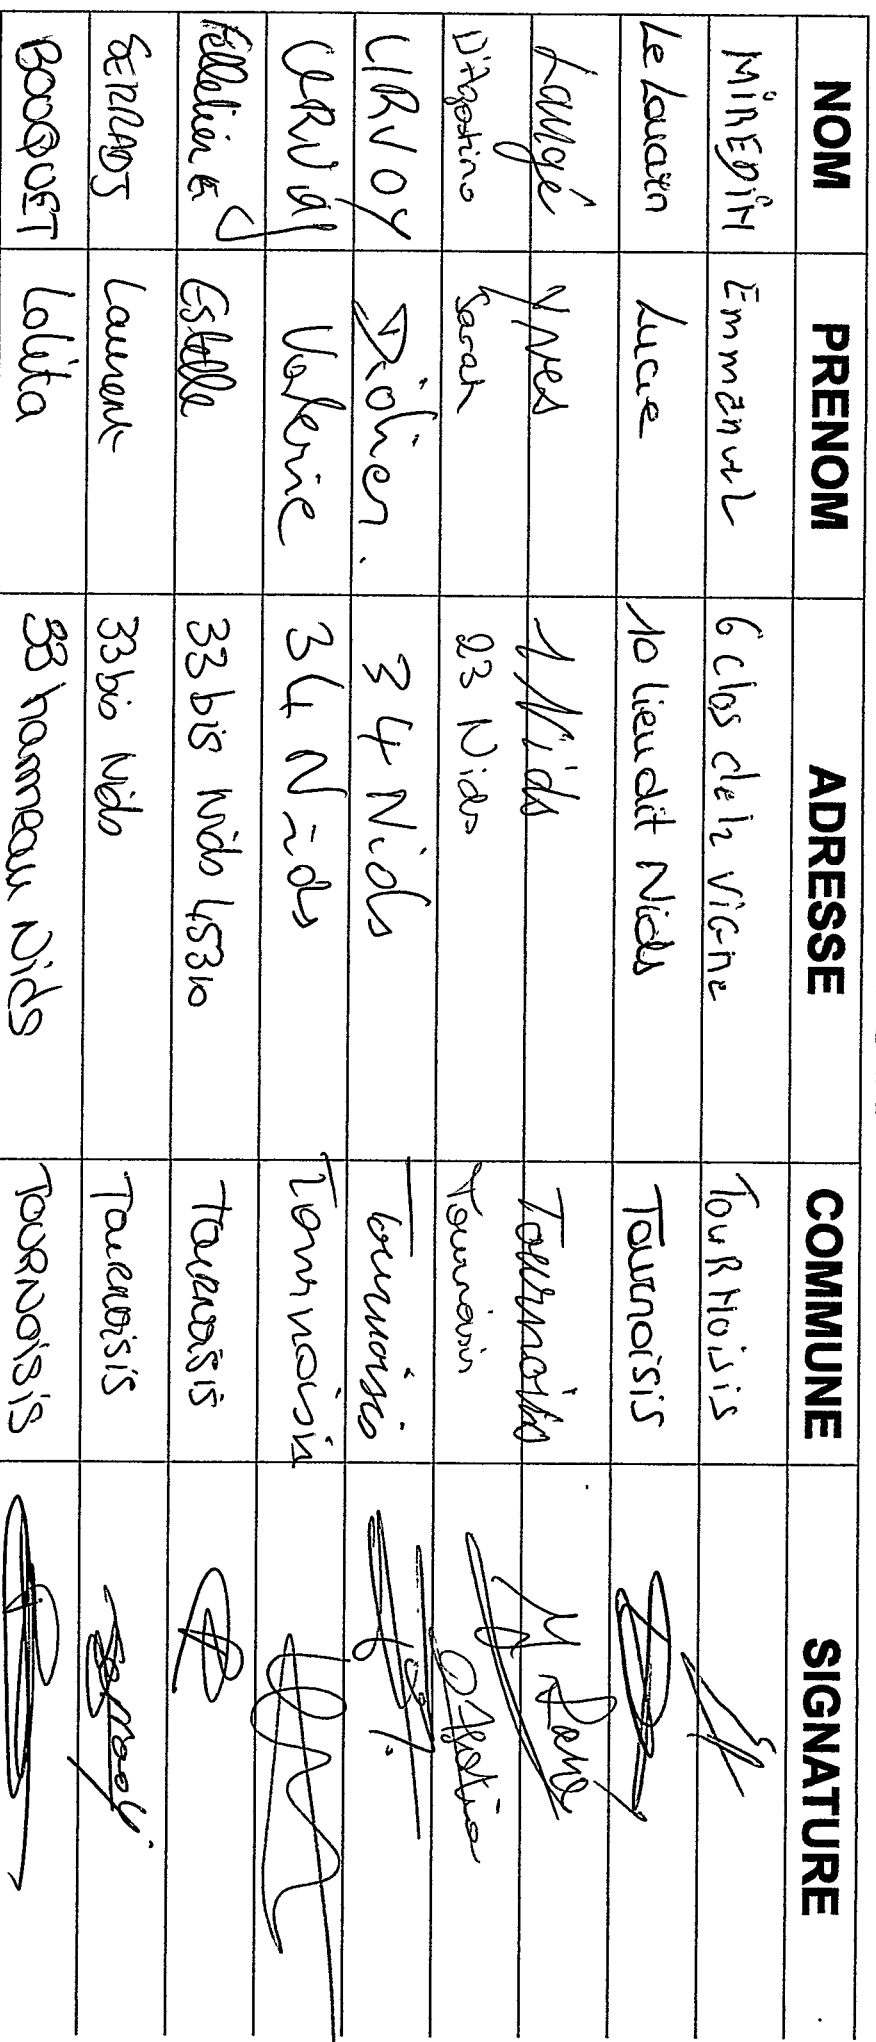 NOM PRENOM ADRESSE COMMUNE SIGNATURE
MiREDiN Emmanuel 6 clos de la ViGne TouRNoisis
Le Louarn Lucie 10 lieu dit Nids Tournoisis
Laugé Yves 1 Nids Tournoisis
D'Agostino Sarah 23 Nids Tournoisis
URVOY Didier. 34 Nids Tournoisis
URVOY Valerie 34 Nids Tournoisis
Estelle 33 bis Nids 45310 Tournoisis
Laurent 33 bis Nids Tournoisis
BOUQUET Lolita 33 hameau Nids TOURNOISIS